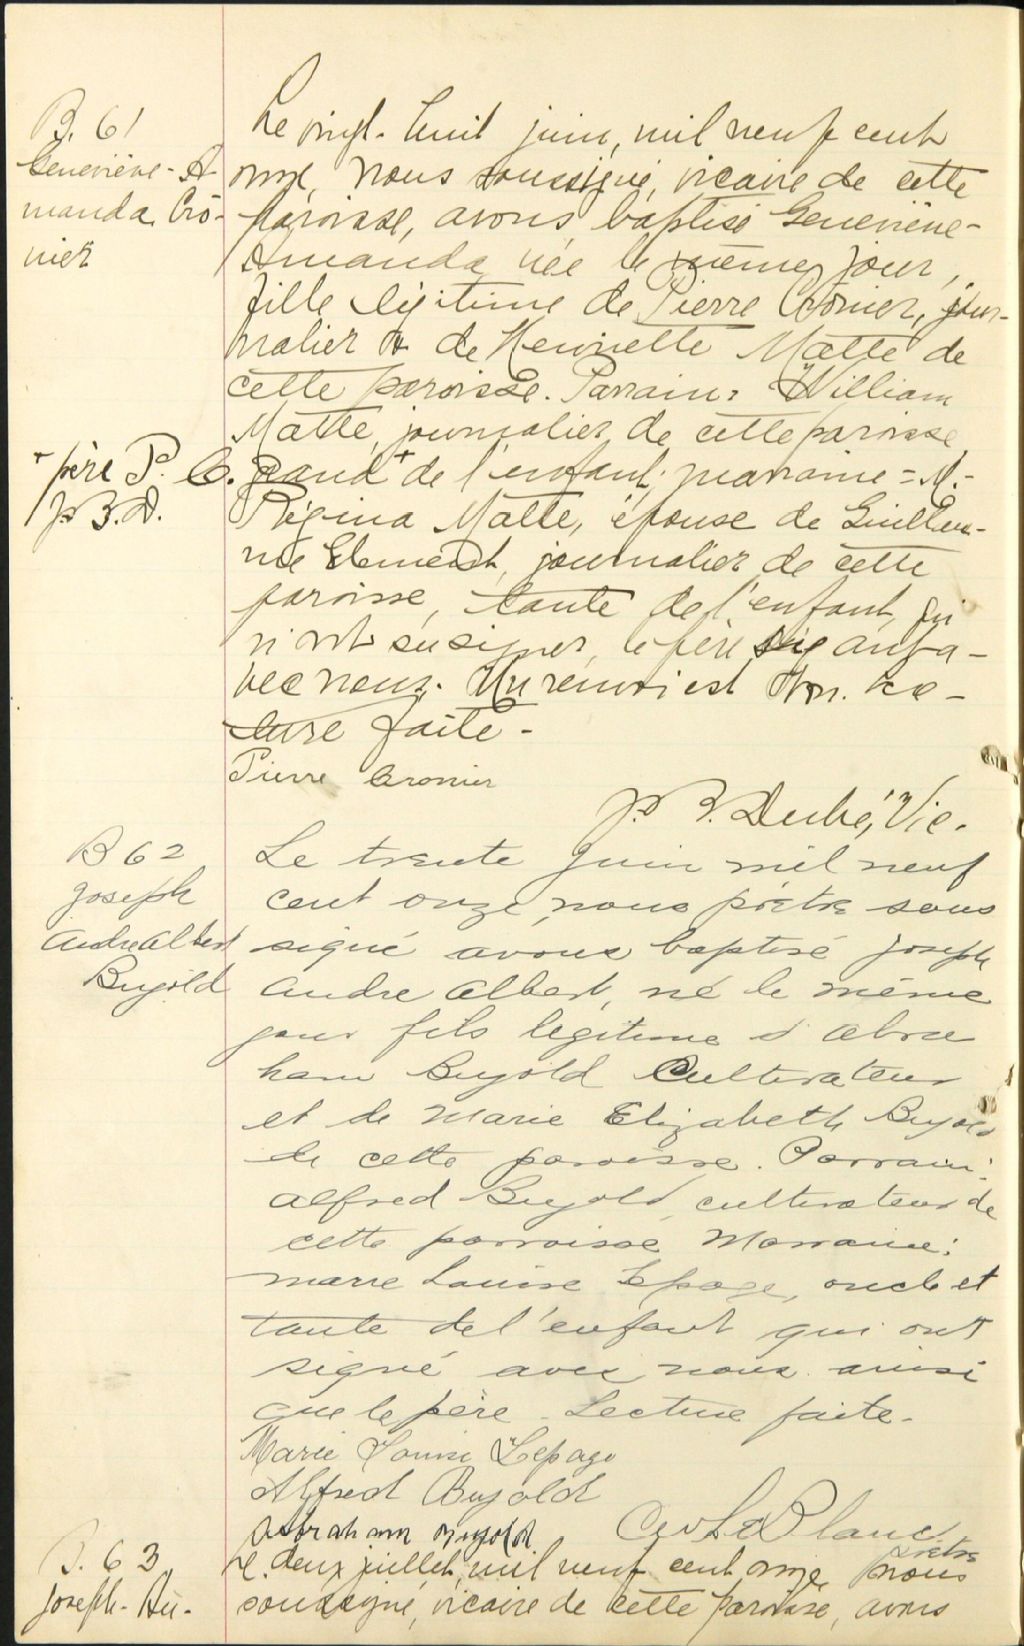 B. 61
Geneviève-A-
manda Cro-
nier
Le vingt-huit juin, mil neuf cent
onze, nous soussigné, vicaire de cette
paroisse, avons baptisé Geneviève-
Amanda née le même jour,
fille légitime de Pierre Cronier, jour-
nalier & de Henriette Matte de
cette paroisse. Parrain: William
Matte, journalier de cette paroisse
+ père P. C.
J. B. D.
grand + de l'enfant; marraine = M.-
Régina Matte, épouse de Guillau-
me Clement, journalier de cette
paroisse, tante de l'enfant, qui
n'ont su signer, le père
vec nous. Un renvoi est bon. Lec-
ture faite -
Pierre Cronier
J. B. Dubé, Vic.
B 62
Joseph
Andre Albert
Bujold
Le trente Juin mil neuf
cent onze, nous prêtre sous
signé avons baptisé Joseph
Andre Albert, né le même
jour fils légitime d'Abra
ham Bujold Cultivateur
et de Marie Elizabeth Bujold
de cette paroisse. Parrain:
Alfred Bujold cultivateur de
cette parroisse Marraine:
Marie Louise Lepage, oncle et
tante de l'enfant qui ont
signé avec nous ainsi
que le père - Lecture faite -
Marie Louise Lepage
Alfred Bujold
Abraham Bujold
LeBlanc
prêtre
B. 63
Joseph-Au-
Le deux juillet, mil neuf cent onze nous
soussigné, vicaire de cette paroisse, avons